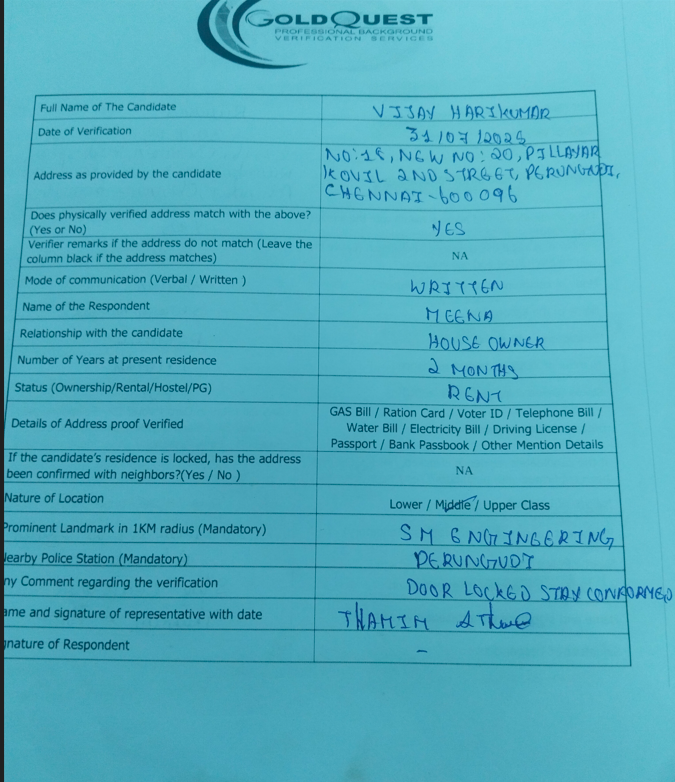 GOLDQUEST
PROFESSIONAL BACKGROUND
VERIFICATION SERVICES
Full Name of The Candidate VIJAY HARIKUMAR
Date of Verification 31/07/2025
Address as provided by the candidate NO:18, NEW NO:20, PILLAYAR
KOVIL 2ND STREET, PERUNGUDI,
CHENNAI-600096
Does physically verified address match with the above?
(Yes or No) YES
Verifier remarks if the address do not match (Leave the
column black if the address matches) NA
Mode of communication (Verbal / Written ) WRITTEN
Name of the Respondent MEENA
Relationship with the candidate HOUSE OWNER
Number of Years at present residence 2 MONTHS
Status (Ownership/Rental/Hostel/PG) RENT
Details of Address proof Verified GAS Bill / Ration Card / Voter ID / Telephone Bill /
Water Bill / Electricity Bill / Driving License /
Passport / Bank Passbook / Other Mention Details
If the candidate's residence is locked, has the address
been confirmed with neighbors?(Yes / No ) NA
Nature of Location Lower / Middle / Upper Class
Prominent Landmark in 1KM radius (Mandatory) SM ENGINGERING
Nearby Police Station (Mandatory) PERUNGUDI
ny Comment regarding the verification DOOR LOCKED STAY CONFORMED
ame and signature of representative with date THAMIM
gnature of Respondent -